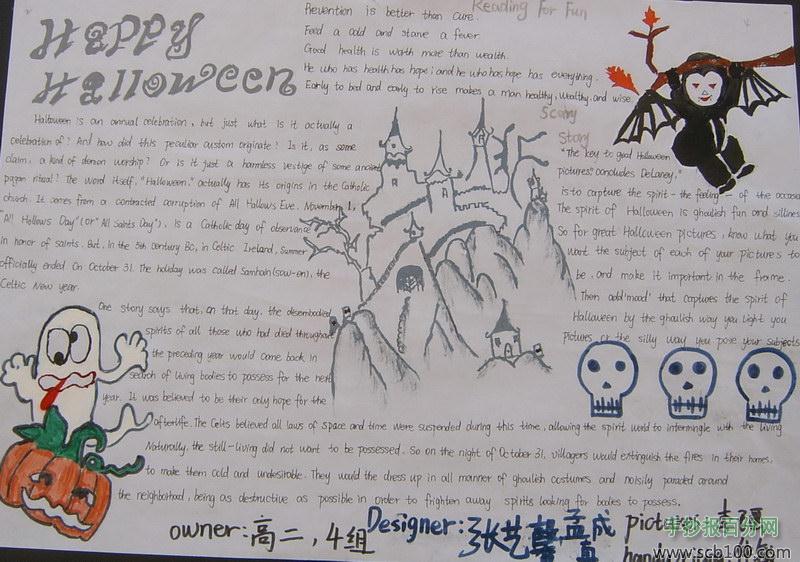 Happy
Halloween
Reading For Fun
Prevention is better than cure.
Feed a cold and starve a fever.
Good health is worth more than wealth.
He who has health has hope; and he who has hope has everything.
Early to bed and early to rise makes a man healthy, wealthy and wise
Halloween is an annual celebration, but just what is it actually a
celebration of? And how did this peculiar custom originate? Is it, as some
claim, a kind of demon worship? Or is it just a harmless vestige of some ancient
pagan ritual? The word itself, "Halloween," actually has its origins in the Catholic
church. It comes from a contracted corruption of All Hallows Eve. November 1,
"All Hollows Day" (or "All Saints Day"), is a Catholic day of observance
in honor of saints. But, in the 5th century BC, in Celtic Ireland, summer
officially ended on October 31. The holiday was called Samhain (sow-en), the
Celtic New year.
One story says that, on that day, the disembodied
spirits of all those who had died throughout
the preceding year would come back in
search of living bodies to possess for the next
year. It was believed to be their only hope for the
afterlife. The Celts believed all laws of space and time were suspended during this time, allowing the spirit world to intermingle with the living
Naturally, the still-living did not want to be possessed. So on the night of October 31, villagers would extinguish the fires in their homes,
to make them cold and undesirable. They would the dress up in all manner of ghoulish costumes and noisily paraded around
the neighborhood, being as destructive as possible in order to frighten away spirits looking for bodies to possess.
Scary
Story
"The key to good Halloween
pictures," concludes Delaney,"
is to capture the spirit - the feeling - of the occasion
The spirit of Halloween is ghoulish fun and silliness
So for great Halloween pictures, know what you
want the subject of each of your pictures to
be, and make it important in the frame.
Then add 'mood' that captures the spirit of
Halloween by the ghoulish way you light you
pictures or the silly way you pose your subjects
owner: 高二, 4组
Designer: 张艺馨 孟成真
picture:
手抄报百分网
www.scb100.com